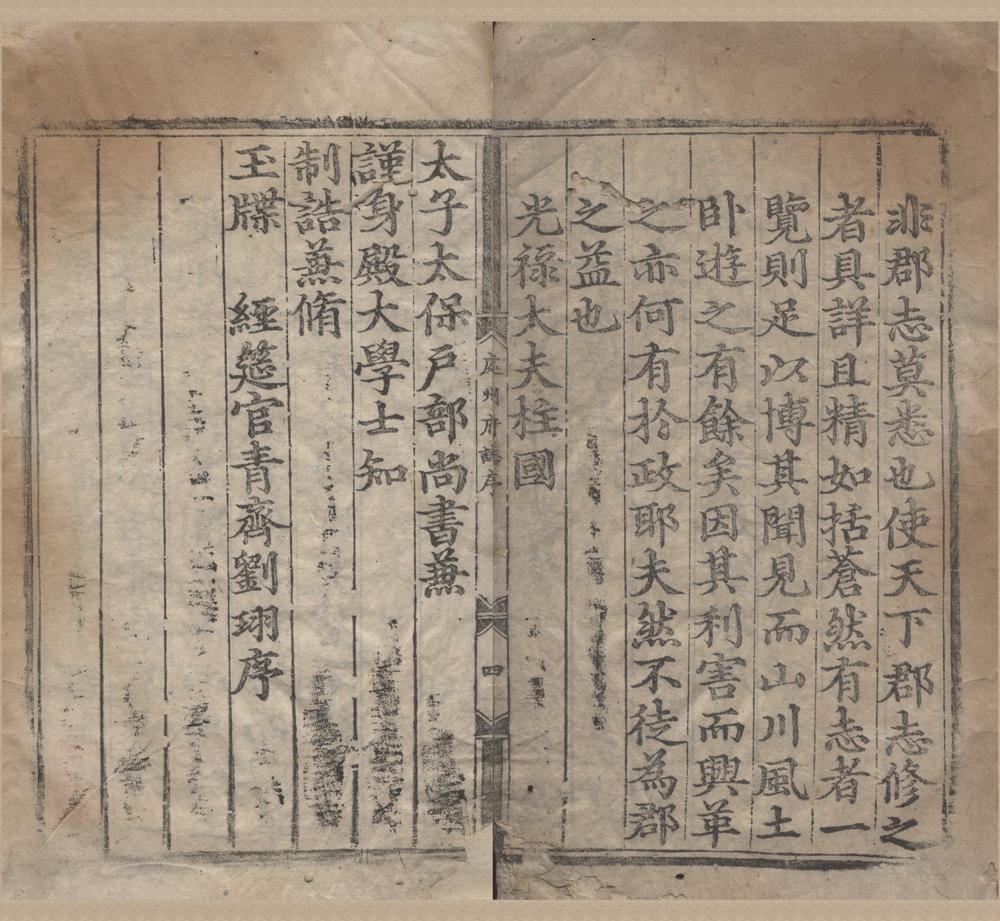 非郡志莫悉也使天下郡志修之
者具詳且精如括蒼然有志者一
覽則足以博其聞見而山川風土
卧遊之有餘矣因其利害而興革
之亦何有於政耶夫然不徒為郡
之益也
光祿大夫柱國
處州府誌序
四
太子太保戶部尚書蒹
謹身殿大學士知
制誥蒹脩
玉牒　經筵官青齊劉珝序